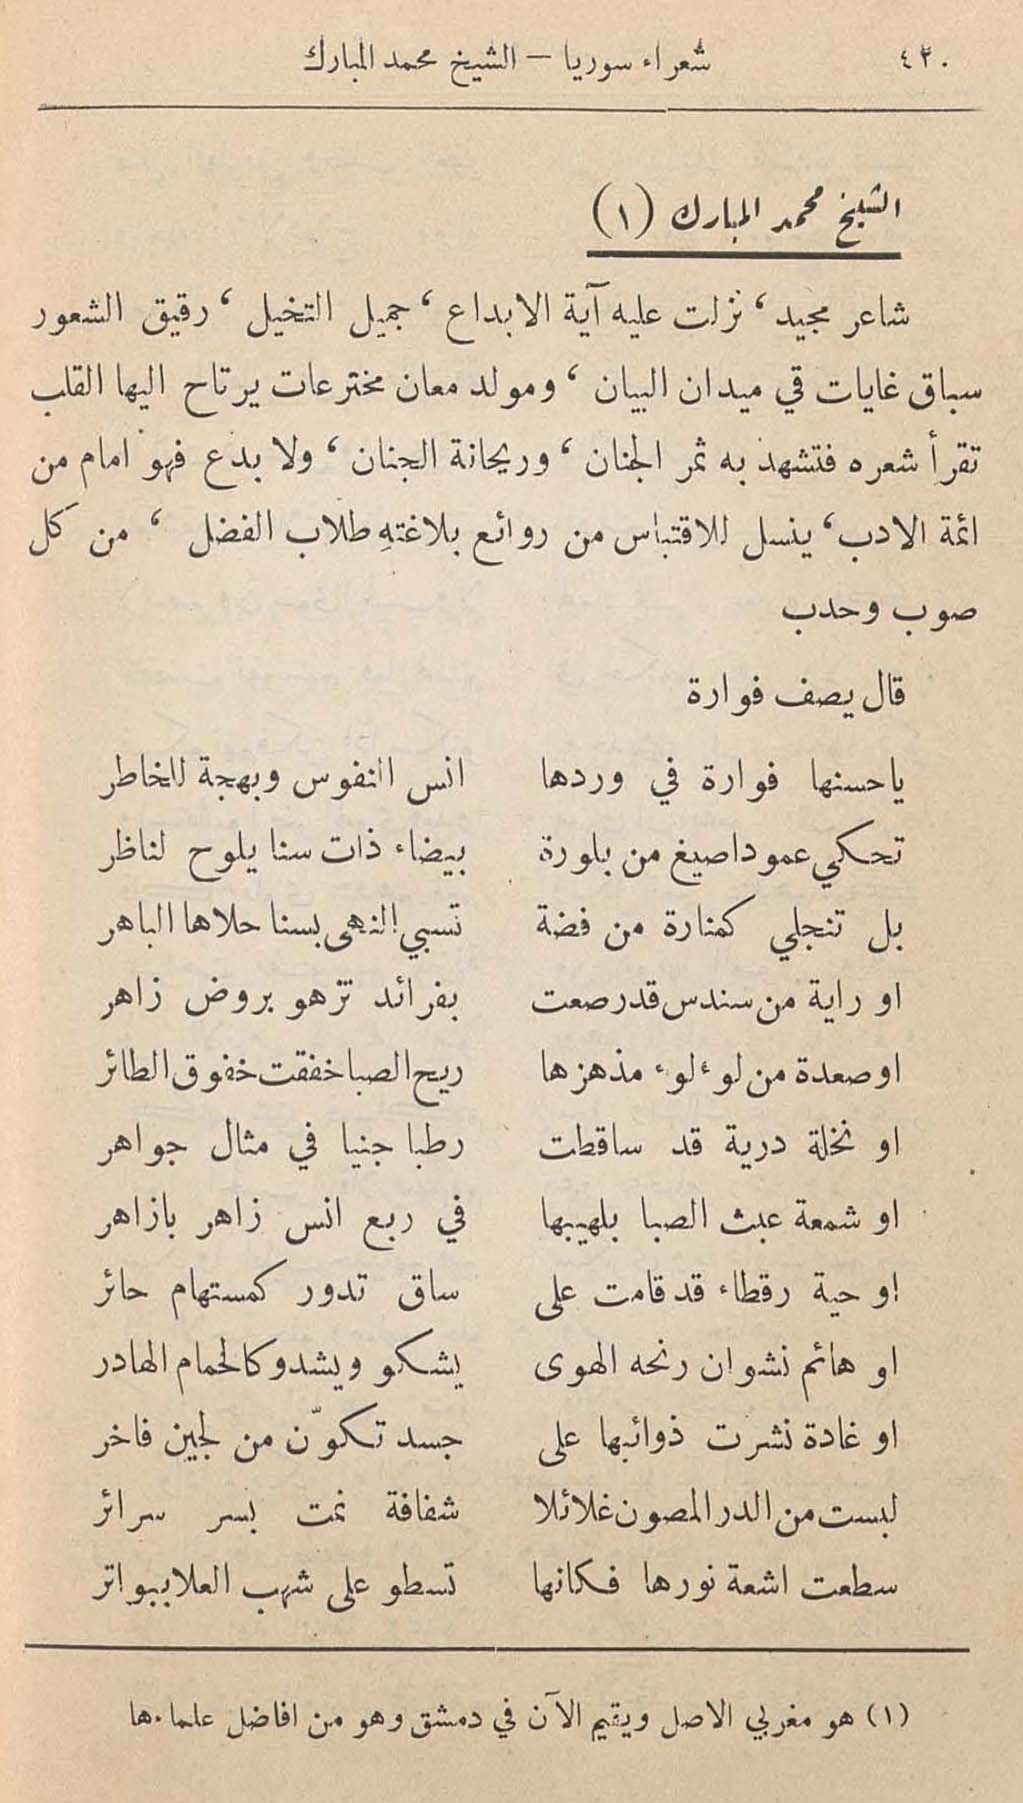 ٤٢٠ شعراء سوريا — الشيخ محمد المبارك
الشيخ محمد المبارك (١)
شاعر مجيد، نزلت عليه آية الابداع، جميل التخيل، رقيق الشعور
سباق غايات قي ميدان البيان، ومولد معان مخترعات يرتاح اليها القلب
تقرأ شعره فتشهد به ثمر الجنان، وريحانة الجنان، ولا بدع فهو امام من
ائمة الادب، ينسل للاقتباس من روائع بلاغتهِ طلاب الفضل، من كل
صوب وحدب
قال يصف فوارة
ياحسنها فوارة في وردها انس النفوس وبهجة للخاطر
تحكي عموداصيغ من بلورة بيضاء ذات سنا يلوح لناظر
بل تنجلي كمنارة من فضة تسبي النهى بسنا حلاها الباهر
او راية من سندس قد رصعت بفرائد تزهو بروض زاهر
او صعدة من لوءلوء مذهزها ريح الصبا خفقت خفوق الطائر
او نخلة درية قد ساقطت رطبا جنيا في مثال جواهر
او شمعة عبث الصبا بلهيبها في ربع انس زاهر بازاهر
او حية رقطاء قد قامت على ساق تدور كمستهام حائر
او هائم نشوان رنحه الهوى يشكو ويشدو كالحمام الهادر
او غادة نشرت ذوائبها على جسد تكوّن من لجين فاخر
لبست من الدر المصون غلائلا شفافة نمت بسر سرائر
سطعت اشعة نورها فكانها تسطو على شهب العلا ببواتر
(١) هو مغربي الاصل ويقيم الآن في دمشق وهو من افاضل علماءها